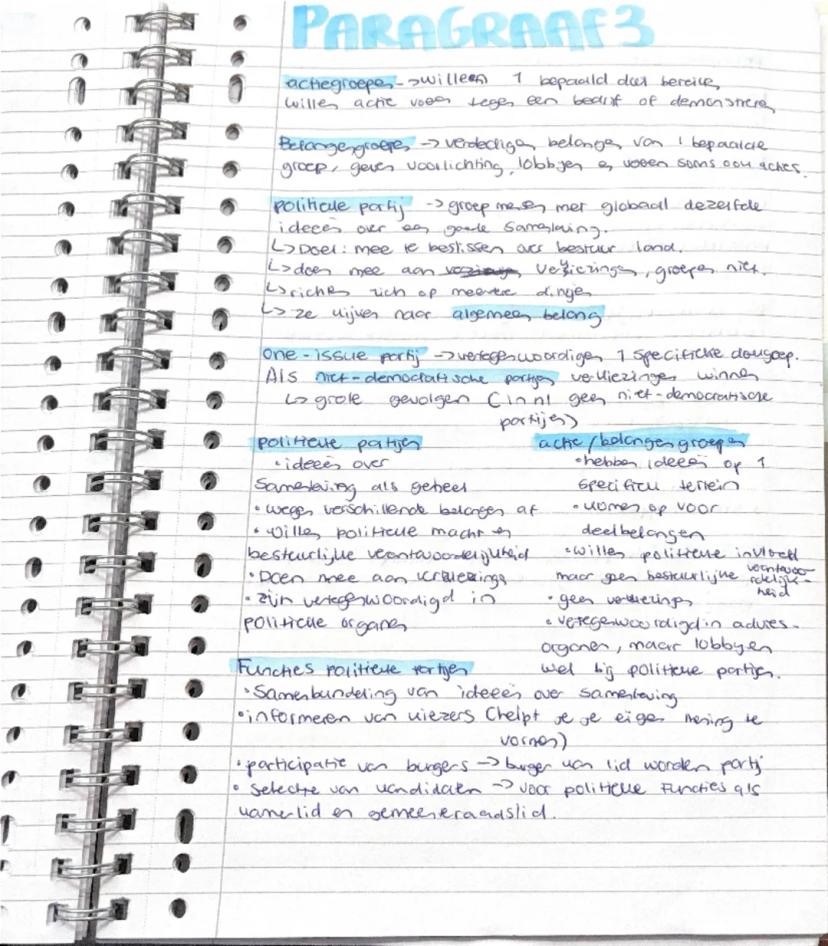 PARAGRAAF 3
actiegroepen -> willen 1 bepaald doel bereiken
willen actie voeren tegen een bedrijf of demonstreren
Belangengroepen -> verdedigen belangen van 1 bepaalde
groep, geven voorlichting, lobbyen en voeren soms ook acties.
politieke partij -> groep mensen met globaal dezelfde
ideeën over een goede samenleving.
↳ Doel: mee te beslissen over bestuur land.
↳ doen mee aan verkiezingen, groepen niet.
↳ richen zich op meerdere dingen
↳ ze kijken naar algemeen belang
One-issue partij -> vertegenwoordigen 1 specifieke doelgroep.
Als niet-democratische partijen verkiezingen winnen
↳ grote gevolgen (in nl geen niet-democratische
partijen)
politieke partijen
• ideeën over
samenleving als geheel
• wegen verschillende belangen af
• willen politieke macht en
bestuurlijke verantwoordelijkheid
• Doen mee aan verkiezingen
• zijn vertegenwoordigd in
politieke organen
actie/belangengroepen
• hebben ideeën op 1
specifiek terrein
• komen op voor
deelbelangen
• willen politieke invloed
maar geen bestuurlijke verantwoordelijkheid
• geen verkiezingen
• vertegenwoordigd in advies-
organen, maar lobbyen
wel bij politieke partijen.
Functies politieke partijen
• Samenbundeling van ideeën over samenleving
• informeren van kiezers (helpt je je eigen mening te
vormen)
• participatie van burgers -> burger kan lid worden partij
• Selectie van kandidaten -> voor politieke functies als
kamerlid en gemeenteraadslid.